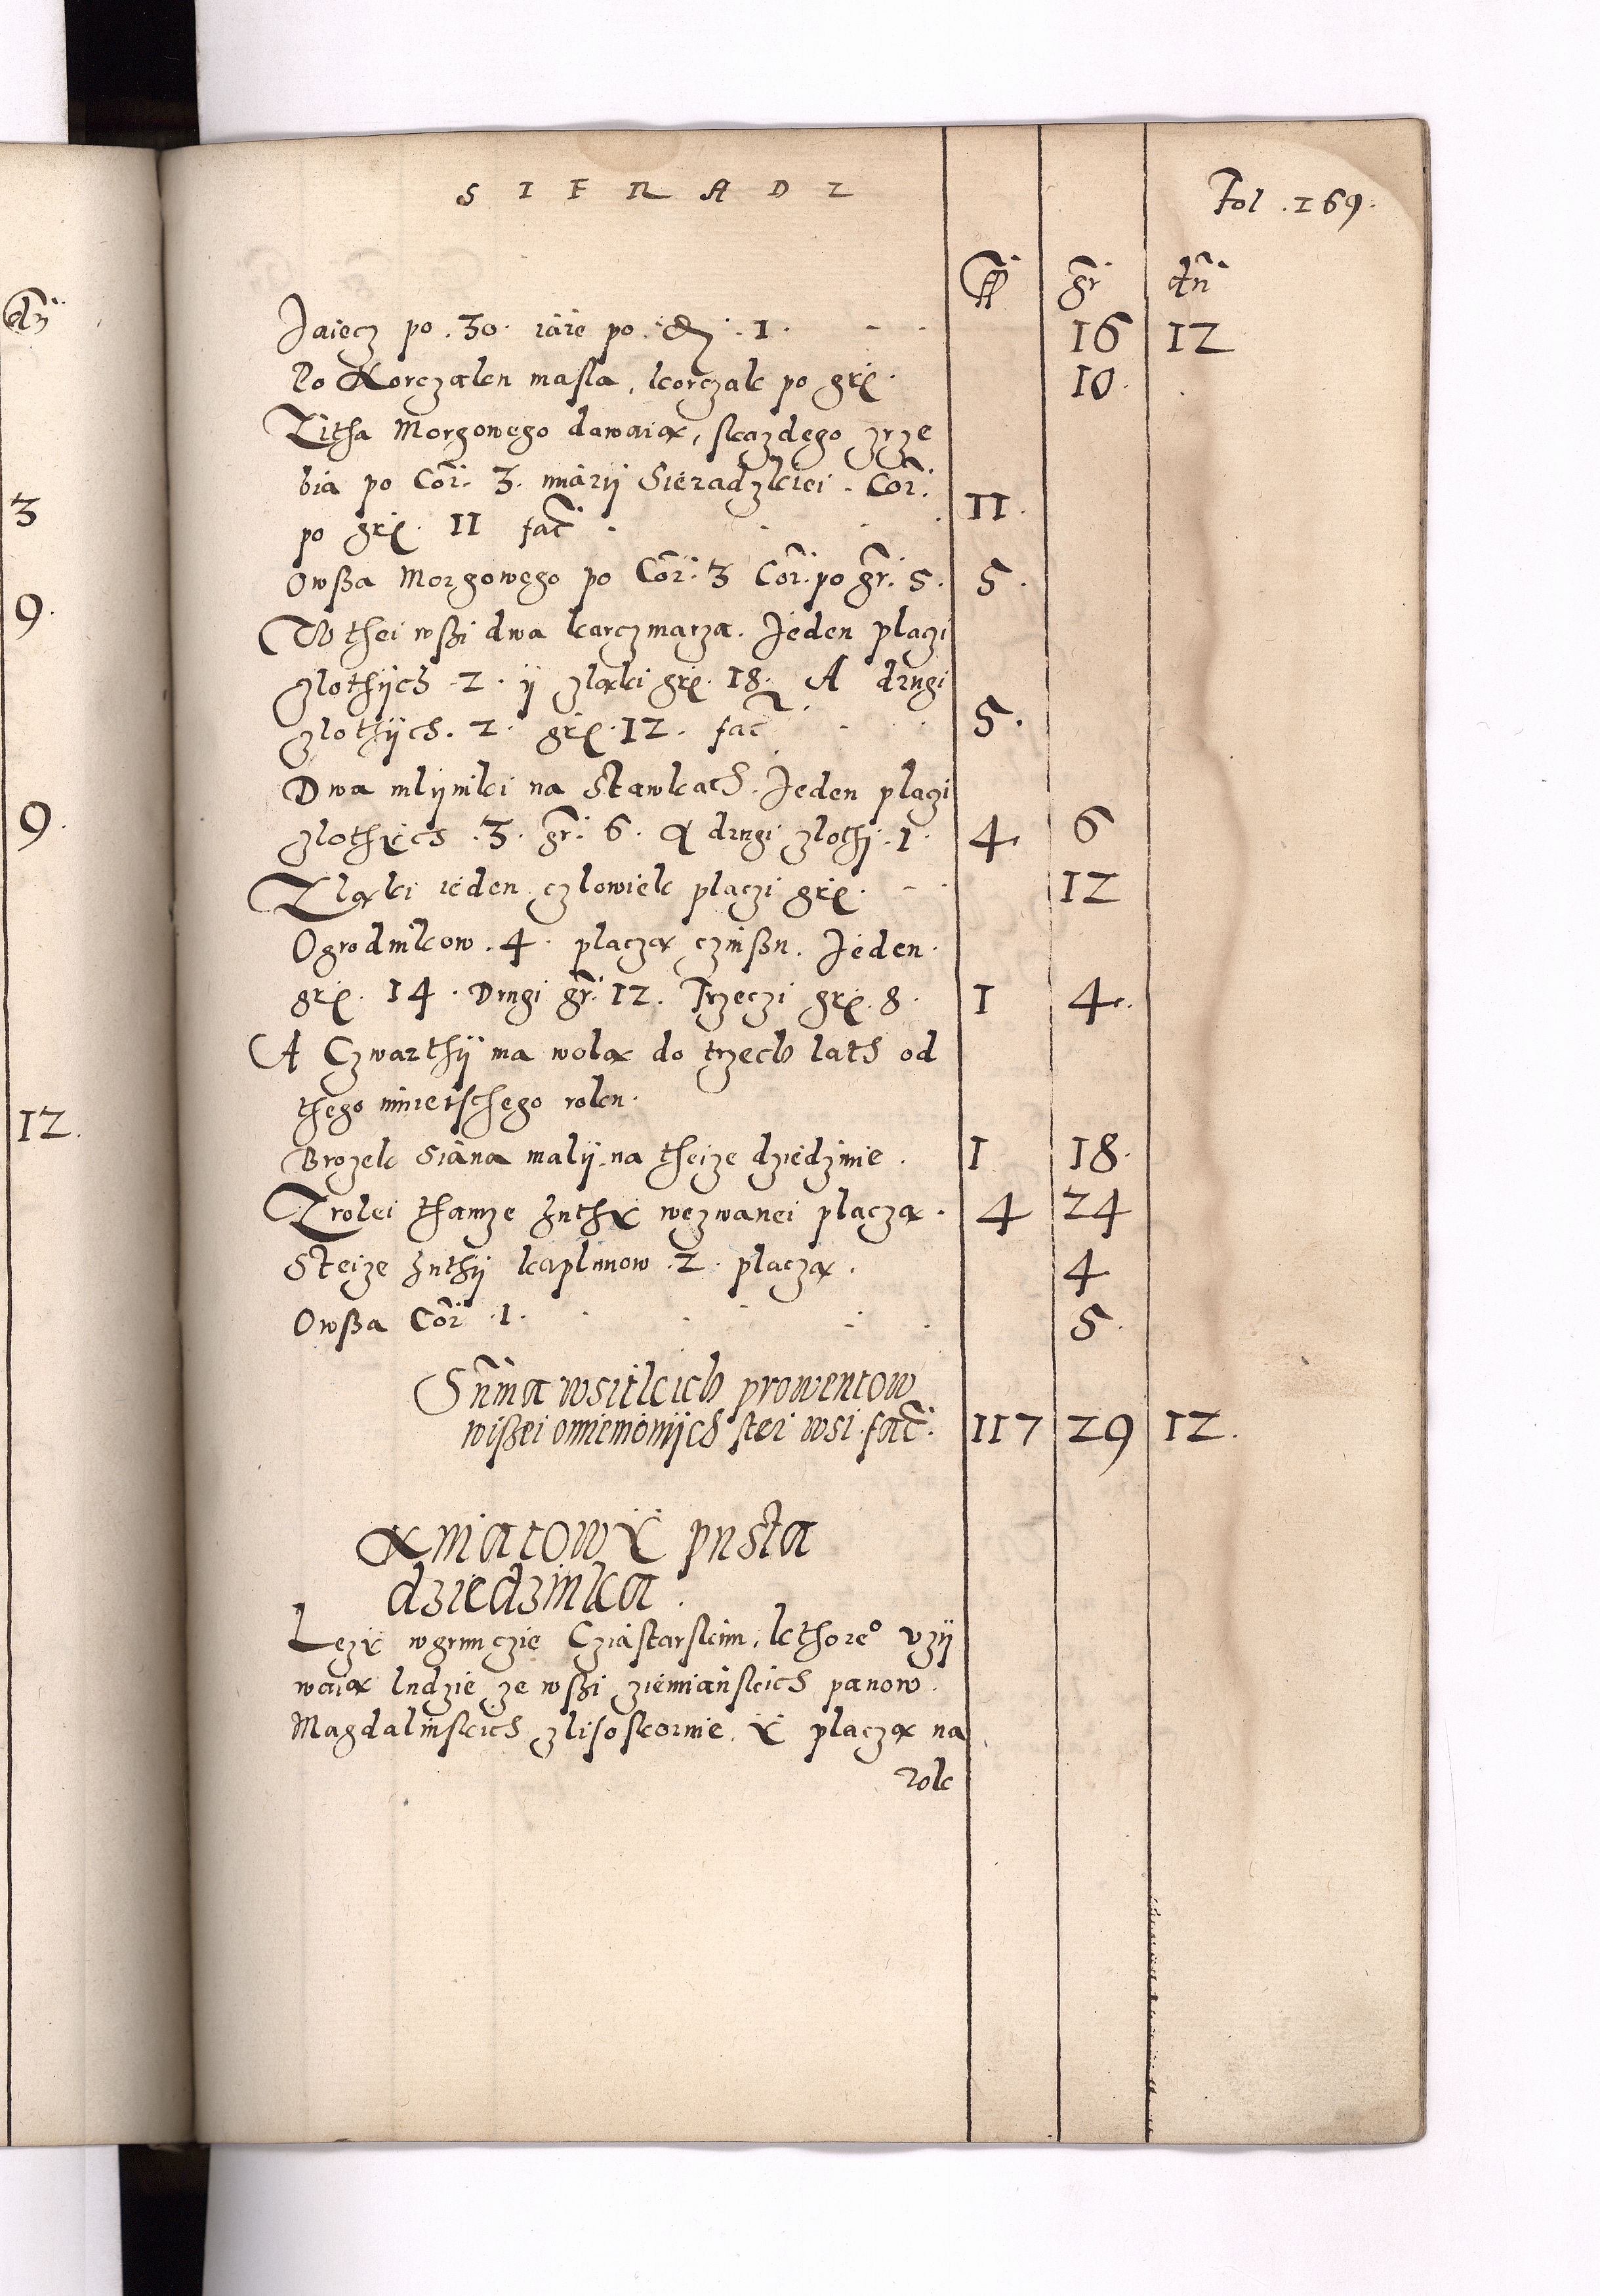 SIERADZ
Fol. 169.
fl gr dn
Jaiecz po . 30 . iáie po . d . 1 . 16 12
Po Korczaku masla, korczak po grẏ. 10.
Zitha Morgowego dawaią, skazdego zrze
bia po Cor. 3. miárÿ Siéradzkiei . Cor.
po grẏ. 11 fac̃ . 11.
Owßa Morgowego po Cor. 3 Cor. po gr. 5. 5.
W thei wßi dwa karczmarza. Jeden placzi
zlothÿch . 2 . ÿ zląki grẏ. 18. A drugi
zlothÿch . 2 . grẏ. 12 . fac̃ . 5.
Dwa mlÿnki na Stawkach. Jeden placzi
zlothẏch . 3 . gr. 6 . A drugi zlothÿ . 1 . 4 6
Zląki ieden czlowiek placzi grẏ. 12
Ogrodnikow . 4 . placzą czinßu. Jeden
grẏ. 14 . Drugi gr. 12 . Trzeczi grẏ. 8 . 1 4.
A Czwarthÿ ma wolą do trzech lath od
thego ninieischego roku.
Brozek Siána malÿ na theize dziedzinie . 1 18.
Zrolei thamze Huthẏ wezwanei placzą . 4 24
Steize Huthÿ kaplunow . 2 . placzą . 4
Owßa Cor . 1 . 5.
Suma wsitkich prowentow
wißei omienionÿch stei wsi . fac̃. 117 29 12.
Kmiatowẏ pusta
dziedzinka .
Lezẏ wgruńczie Cziástarskim, kthore° vzÿ
waią ludzie ze wßi ziemiańskich panow
Magdalinskich zlisoskornie. ẏ placzą na
rok
dn
3
9.
9.
12.